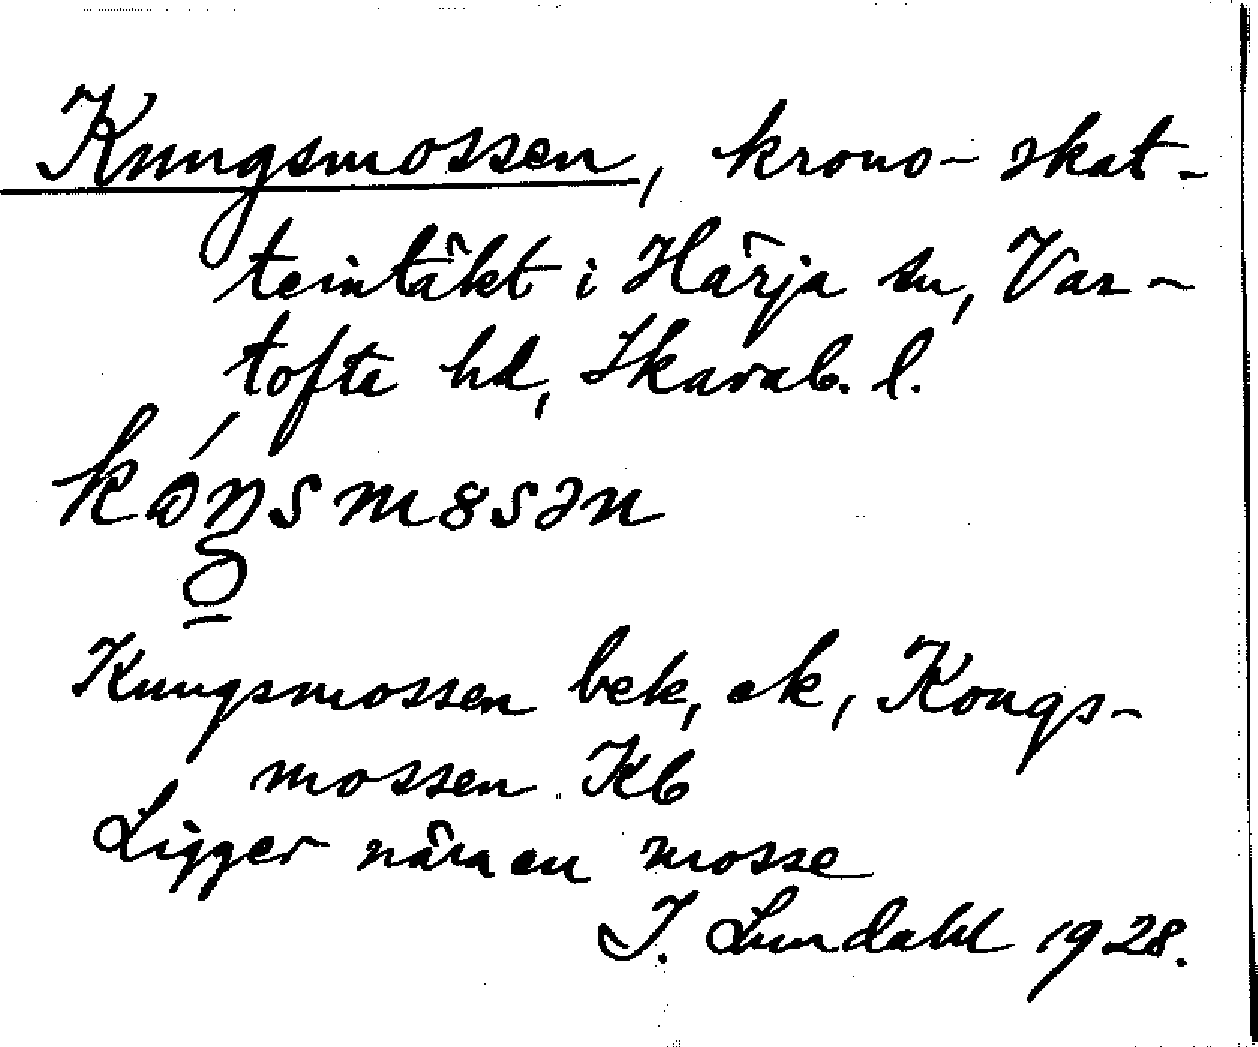 Kungsmossen, krono-skat-
teintäkt i Härja sn, Var-
tofte hd, Skarab. l.
kóŋsmɵsən
Kungsmossen bek, ek, Kongs-
mossen Kb
Ligger nära en mosse
I. Lundahl 1928.